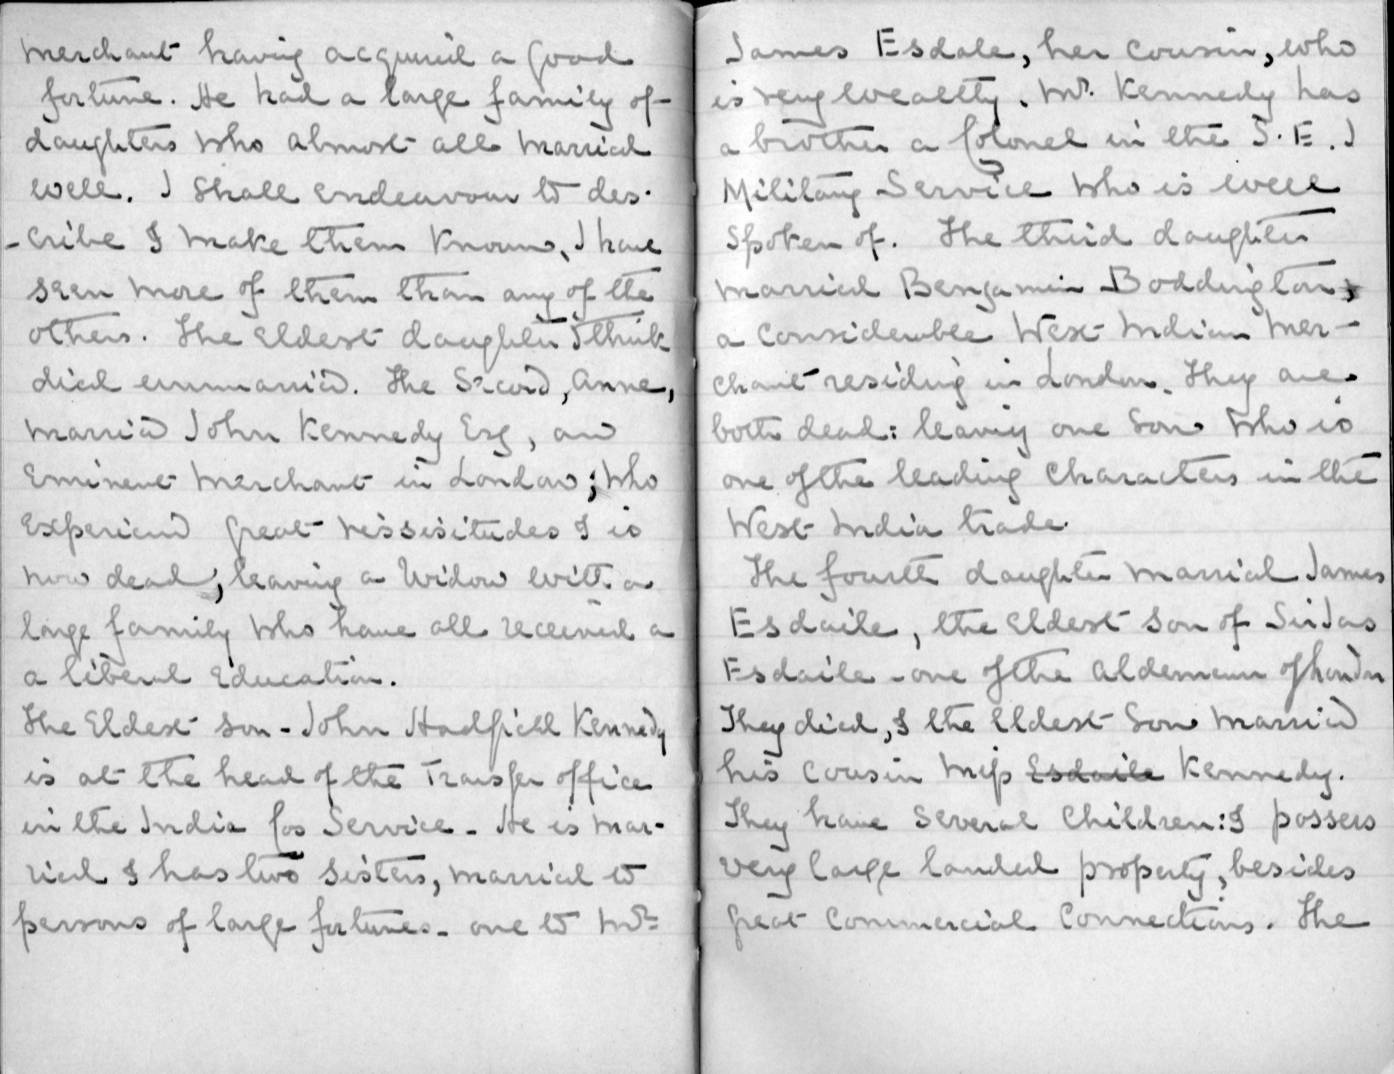 merchant having acquired a good
fortune. He had a large family of
daughters who almost all married
well. I shall endeavour to des-
-cribe & make them known, I have
seen more of them than any of the
others. The eldest daughter I think
died unmarried. The Second, Anne,
married John Kennedy Esq, an
Eminent merchant in London; who
Experienced great vississitudes & is
now dead, leaving a Widow with a
large family who have all received a
a liberal Education.
The Eldest son - John Hadfield Kennedy
is at the head of the Transfer office
in the India Cos Service - He is mar-
ried & has two sisters, married to
persons of large fortunes - one to Mr
James Esdale, her cousin, who
is very wealthy. Mr. Kennedy has
a brother a Colonel in the I.E.I
Military Service who is well
spoken of. The third daughter
married Benjamin Boddington,
a considerable West Indian Mer-
chant residing in London. They are
both dead: leaving one Son who is
one of the leading Characters in the
West India trade.
The fourth daughter married James
Esdaile, the eldest son of Sir Jas
Esdaile - one of the aldermen of London
They died, & the eldest Son married
his cousin Miss Esdaile Kennedy.
They have several Children: & possess
very large landed property, besides
great commercial Connections. The